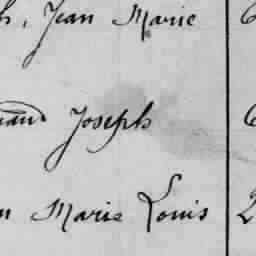 h, Jean Marie 6
and Joseph 6
n Marie Louis 2